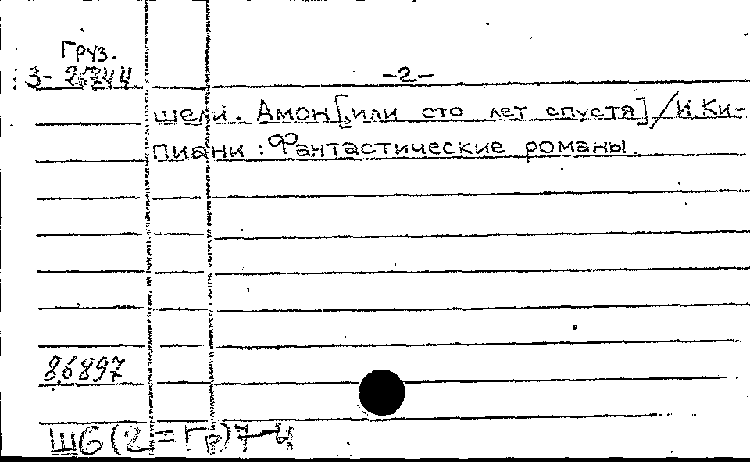 Груз.
3-26244
-2-
шели. Амон [или сто лет спустя] / И Ки-
пиани : Фантастические романы.
86897
Ш6(2=Гр)7-4